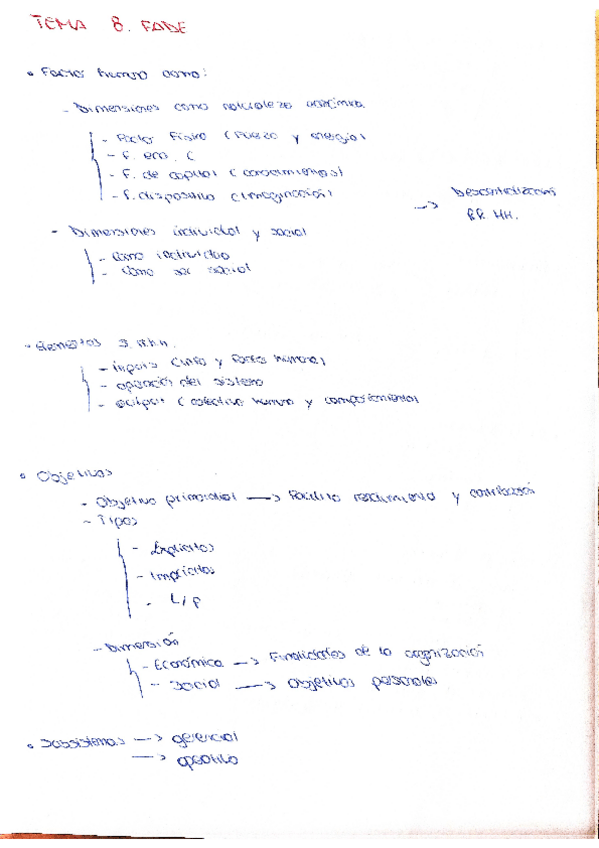 TEMA 8. FADE
• Factor humano como:
- Dimensiones como naturaleza
- Factor Físico (Fuerza y energía)
- F. ero. C
- F. de capital (conocimientos)
- F. dispositivo (Imaginación)
→ Descentralización
RR. HH.
- Dimensiones individual y social
- Como individuo
- Como ser social
• Elementos S. r.h.h.
- inputs (info y factor humano)
- operación del sistema
- output (colectivo humano y comportamientos)
• Objetivos
- Objetivo primordial → rendimiento y contribución
- Tipos
- Explícitos
- Implícitos
- L/p
- Dimensión
- Económica → Finalidades de la organización
- Social → objetivos personales
• Subsistemas → gerencial
→ operativo